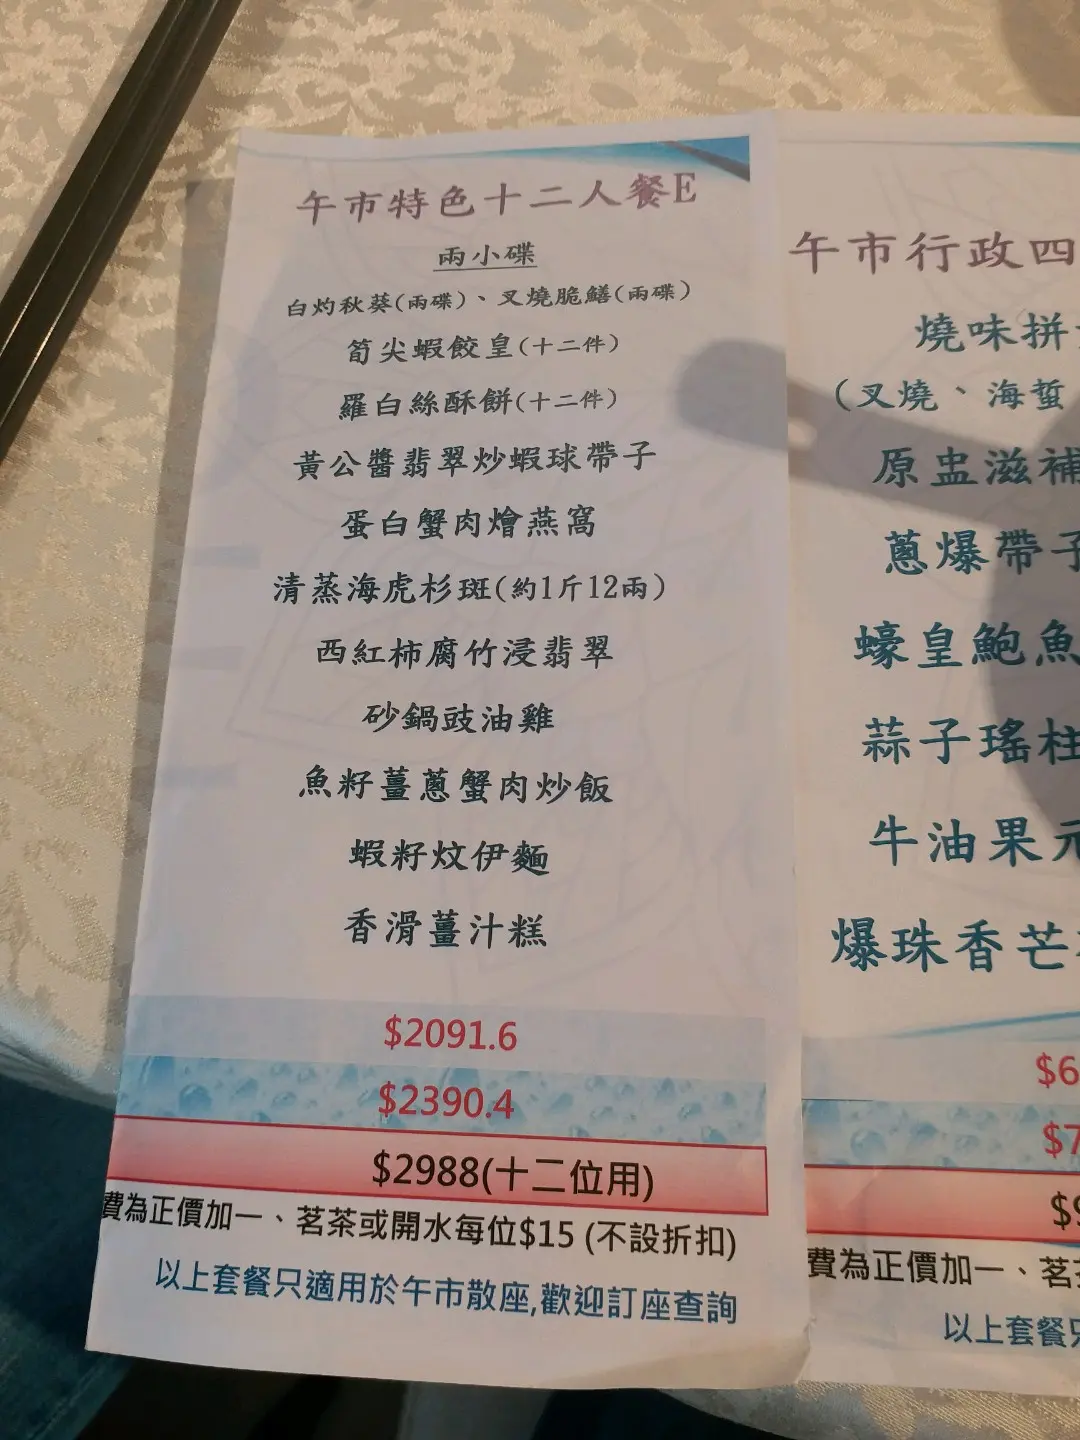 午市特色十二人餐E
兩小碟
白灼秋葵(兩碟)、叉燒脆鱔(兩碟)
筍尖蝦餃皇(十二件)
羅白絲酥餅(十二件)
黃公醬翡翠炒蝦球帶子
蛋白蟹肉燴燕窩
清蒸海虎杉斑(約1斤12兩)
西紅柿腐竹浸翡翠
砂鍋豉油雞
魚籽薑蔥蟹肉炒飯
蝦籽炆伊麵
香滑薑汁糕
$2091.6
$2390.4
$2988(十二位用)
費為正價加一、茗茶或開水每位$15 (不設折扣)
以上套餐只適用於午市散座,歡迎訂座查詢
午市行政四
燒味拼
(叉燒、海蜇
原盅滋補
蔥爆帶子
蠔皇鮑魚
蒜子瑤柱
牛油果元
爆珠香芒
$6
$7
$9
費為正價加一、茗
以上套餐只